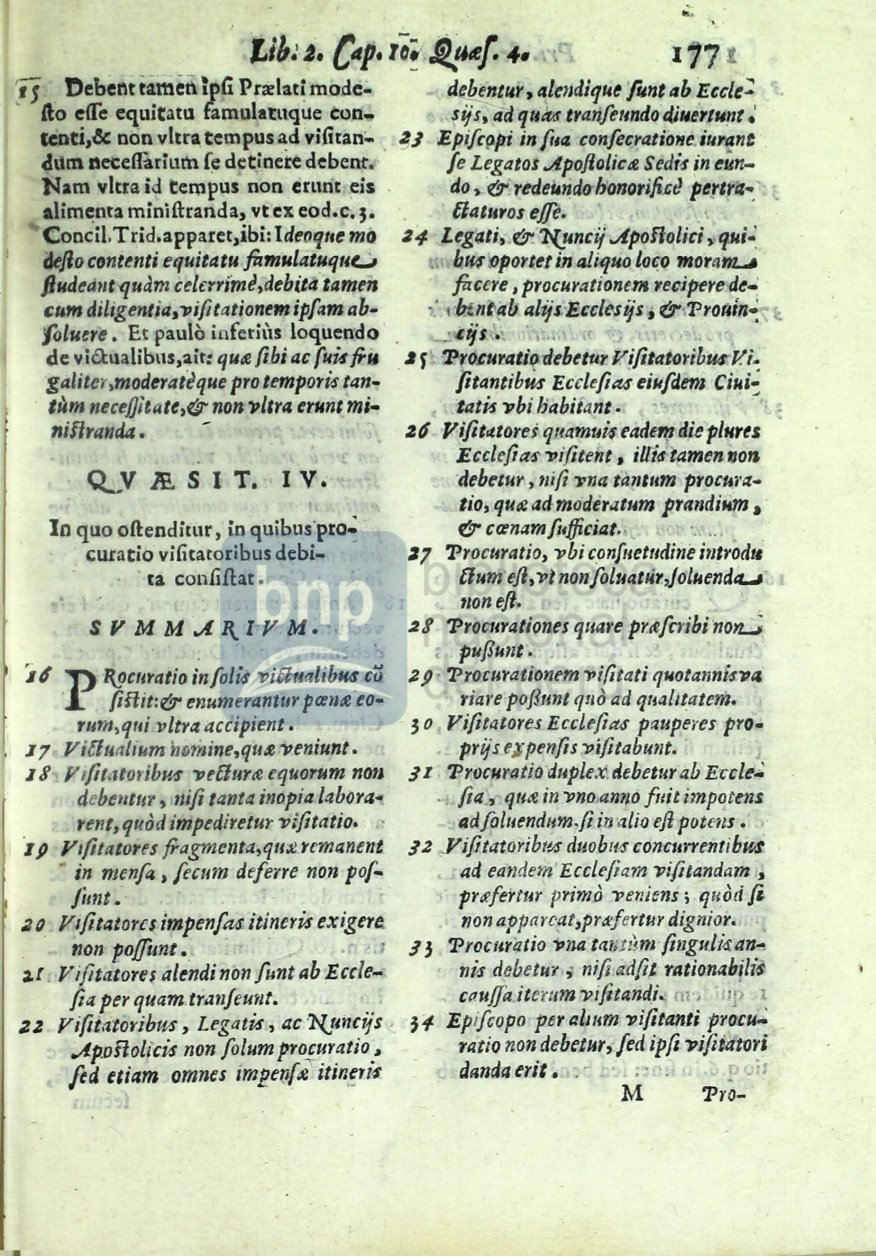 Lib. 2. Cap. 10. Quæſ. 4. 177
15 Debent tamen ipſi Prælati mode-
ſto eſſe equitatu famulatuque con-
tenti,& non vltra tempus ad viſitan-
dum neceſſarium ſe detinere debent.
Nam vltra id tempus non erunt eis
alimenta miniſtranda, vt ex eod.c.3.
Concil.Trid.apparet,ibi: Ideoque mo
deſto contenti equitatu famulatuque
ſtudeant quàm celerrimè,debita tamen
cum diligentia,viſitationem ipſam ab-
ſoluere. Et paulò inferiùs loquendo
de victualibus,ait: quæ ſibi ac ſuis fru
galiter,moderatèque pro temporis tan-
tùm neceſſitate,& non vltra erunt mi-
niſtranda.
QVÆSIT. IV.
In quo oſtenditur, in quibus pro-
curatio viſitatoribus debi-
ta conſiſtat.
SVMMARIVM.
16 PRocuratio in ſolis victualibus cõ
ſiſtit:& enumerantur pœnæ eo-
rum,qui vltra accipient.
17 Victualium nomine,quæ veniunt.
18 Viſitatoribus vecturæ equorum non
debentur, niſi tanta inopia labora-
rent,quòd impediretur viſitatio.
19 Viſitatores fragmenta,quæ remanent
in menſa, ſecum deferre non poſ-
ſunt.
20 Viſitatores impenſas itineris exigere
non poſſunt.
21 Viſitatores alendi non ſunt ab Eccle-
ſia per quam tranſeunt.
22 Viſitatoribus, Legatis, ac Nuncijs
Apoſtolicis non ſolum procuratio,
ſed etiam omnes impenſæ itineris
debentur, alendique ſunt ab Eccle-
ſijs, ad quas tranſeundo diuertunt.
23 Epiſcopi in ſua conſecratione iurant
ſe Legatos Apoſtolicæ Sedis in eun-
do, & redeundo honorificè pertra-
ctaturos eſſe.
24 Legati, & Nuncij Apoſtolici, qui-
bus oportet in aliquo loco moram
facere, procurationem recipere de-
bent ab alijs Eccleſijs, & Prouin-
cijs.
25 Procuratio debetur Viſitatoribus Vi-
ſitantibus Eccleſias eiuſdem Ciui-
tatis vbi habitant.
26 Viſitatores quamuis eadem die plures
Eccleſias viſitent, illis tamen non
debetur, niſi vna tantum procura-
tio, quæ ad moderatum prandium,
& cœnam ſufficiat.
27 Procuratio, vbi conſuetudine introdu
ctum eſt,vt non ſoluatur,ſoluenda
non eſt.
28 Procurationes quare præſcribi non
poßunt.
29 Procurationem viſitati quotannis va
riare poßunt quò ad qualitatem.
30 Viſitatores Eccleſias pauperes pro-
prijs expenſis viſitabunt.
31 Procuratio duplex debetur ab Eccle-
ſia, quæ in vno anno fuit impotens
ad ſoluendum,ſi in alio eſt potens.
32 Viſitatoribus duobus concurrentibus
ad eandem Eccleſiam viſitandam,
præfertur primò veniens; quòd ſi
non appareat,præfertur dignior.
33 Procuratio vna tantùm ſingulis an-
nis debetur, niſi adſit rationabilis
cauſſa iterum viſitandi.
34 Epiſcopo per alium viſitanti procu-
ratio non debetur, ſed ipſi viſitatori
danda erit.
M Pro-
bnp